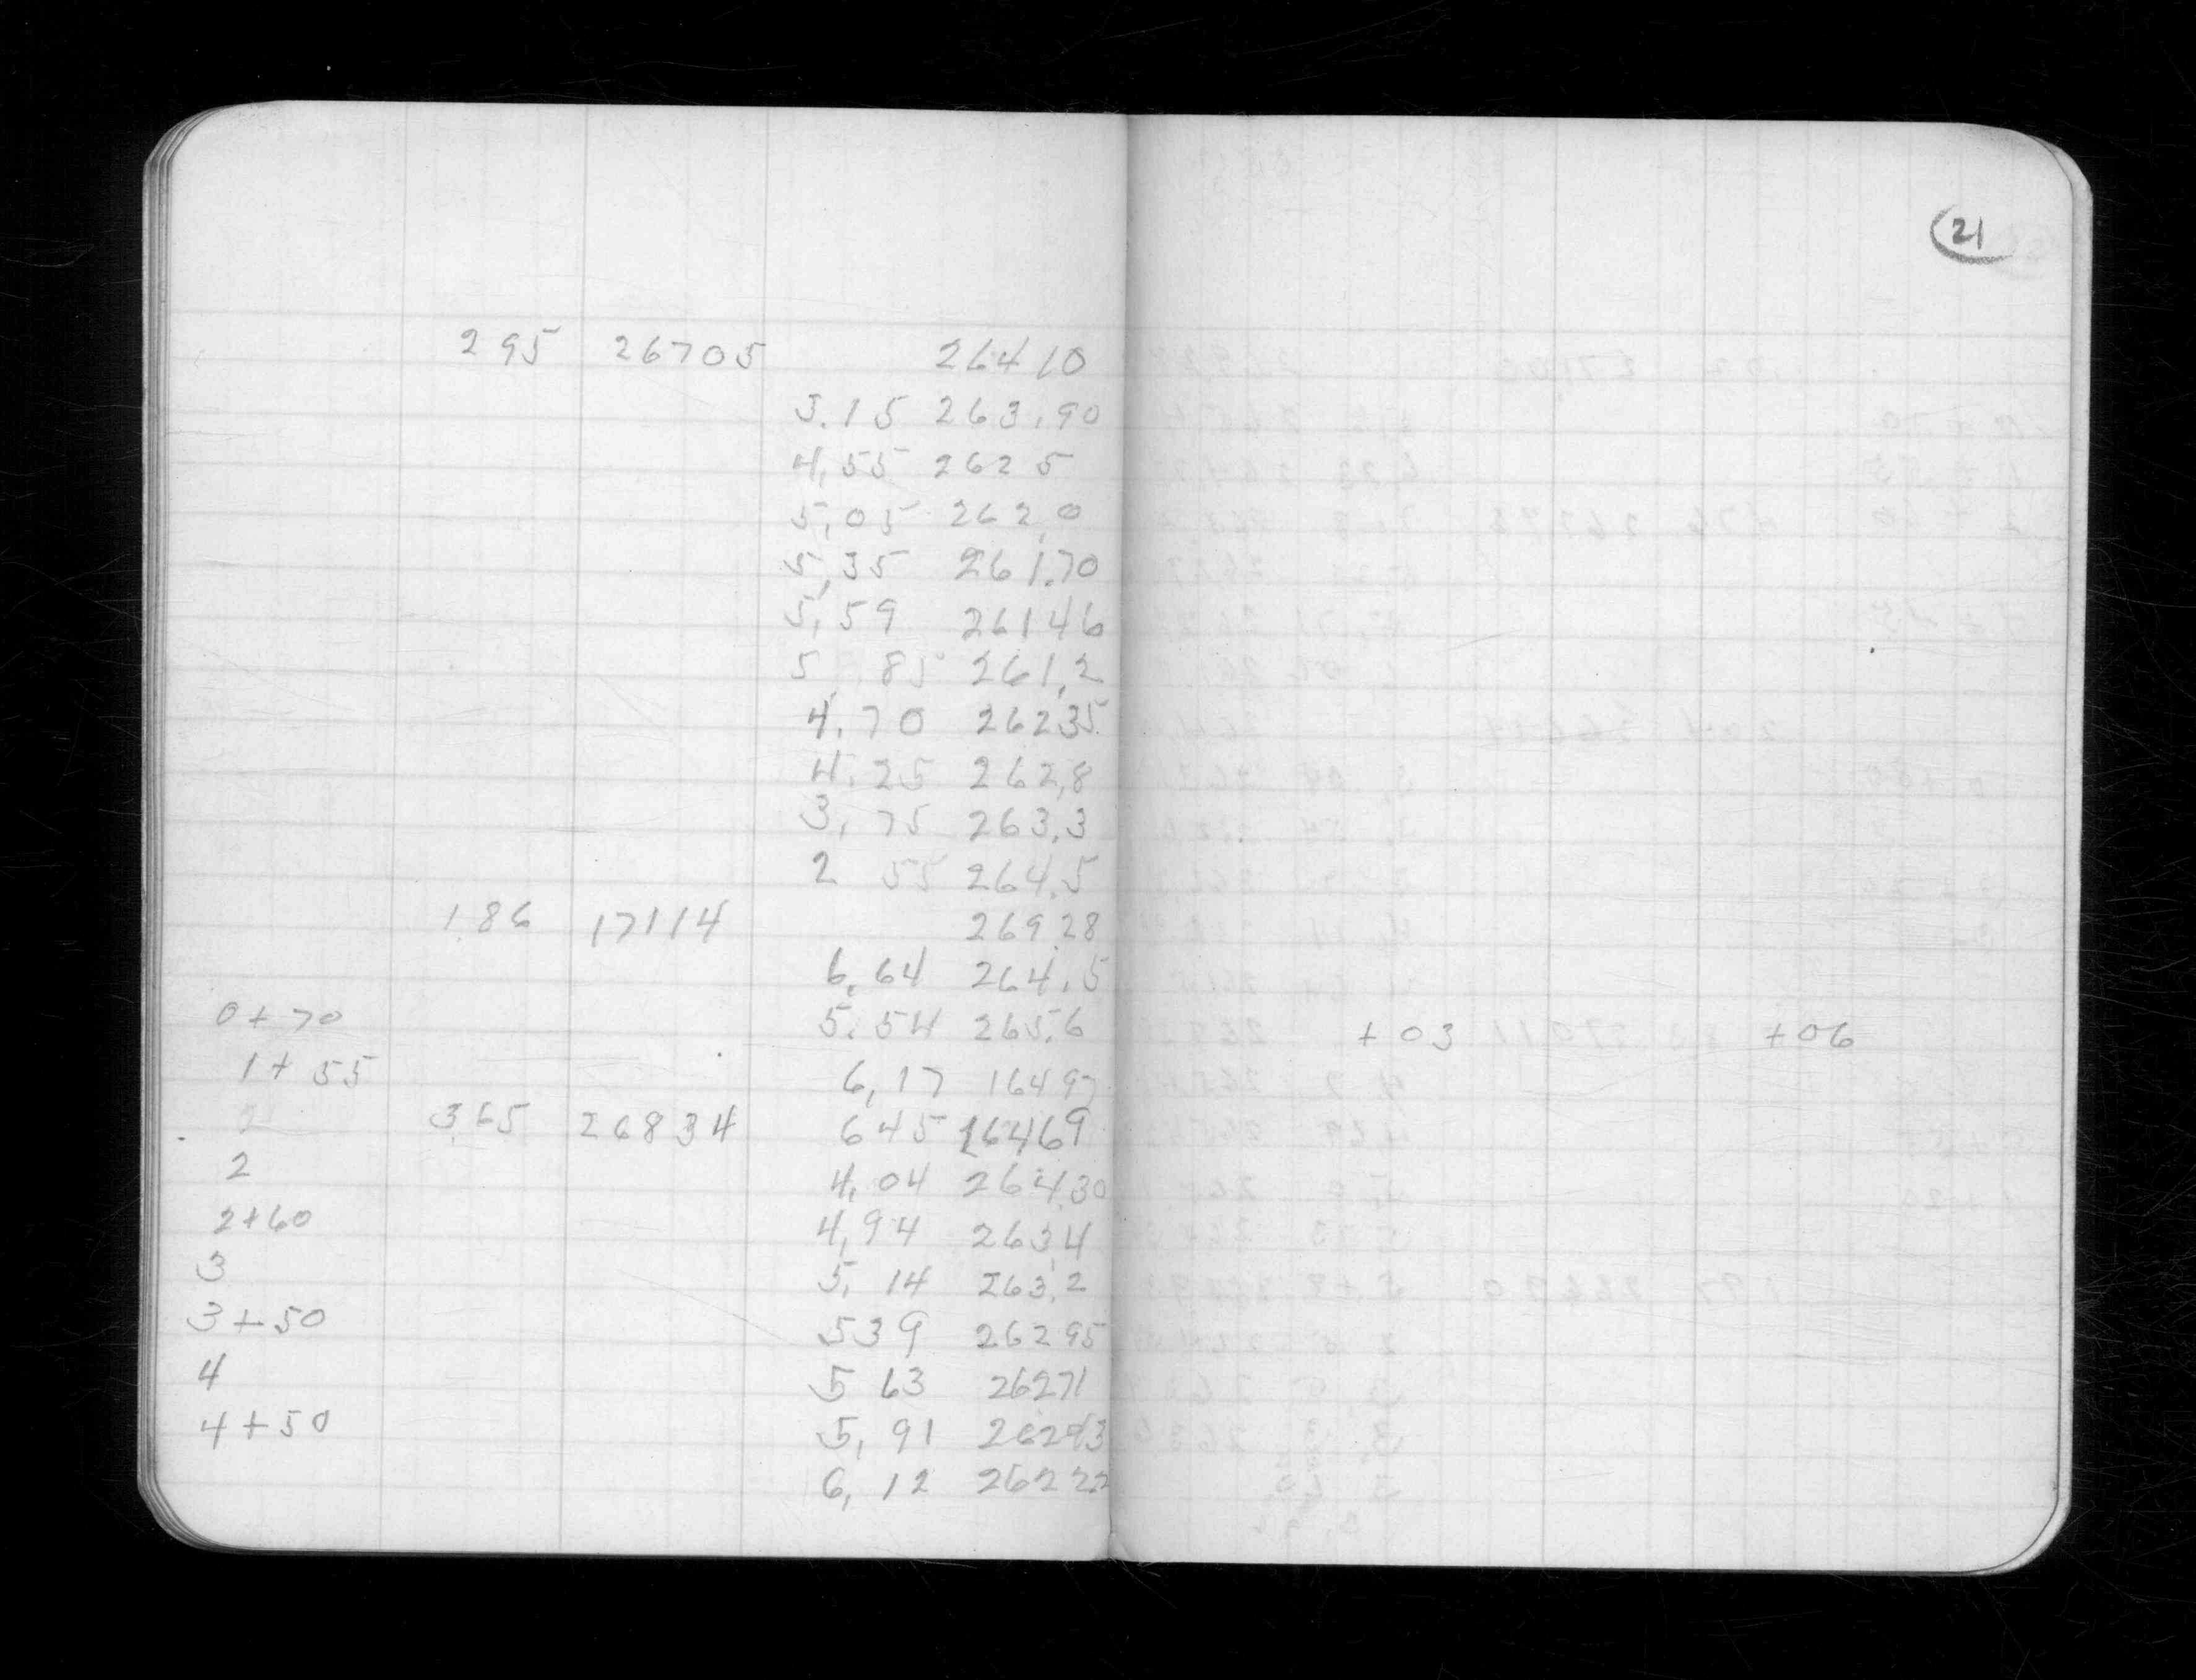 21
295 26705 26410
3.15 263.90
4,55 262 5
5,05 262,0
5,35 261.70
5,59 26146
5 85 261,2
4.70 26235
4.25 262,8
3,75 263.3
2 55 264.5
186 17114 26928
6,64 264.5
0+70 5.54 265.6 +03 +06
1+55 6,17 16497
2 365 26834 645 16469
2 4,04 264,30
2+60 4,94 263,4
3 5,14 263,2
3+50 539 26295
4 5 63 26271
4+50 5,91 26243
6,12 26222